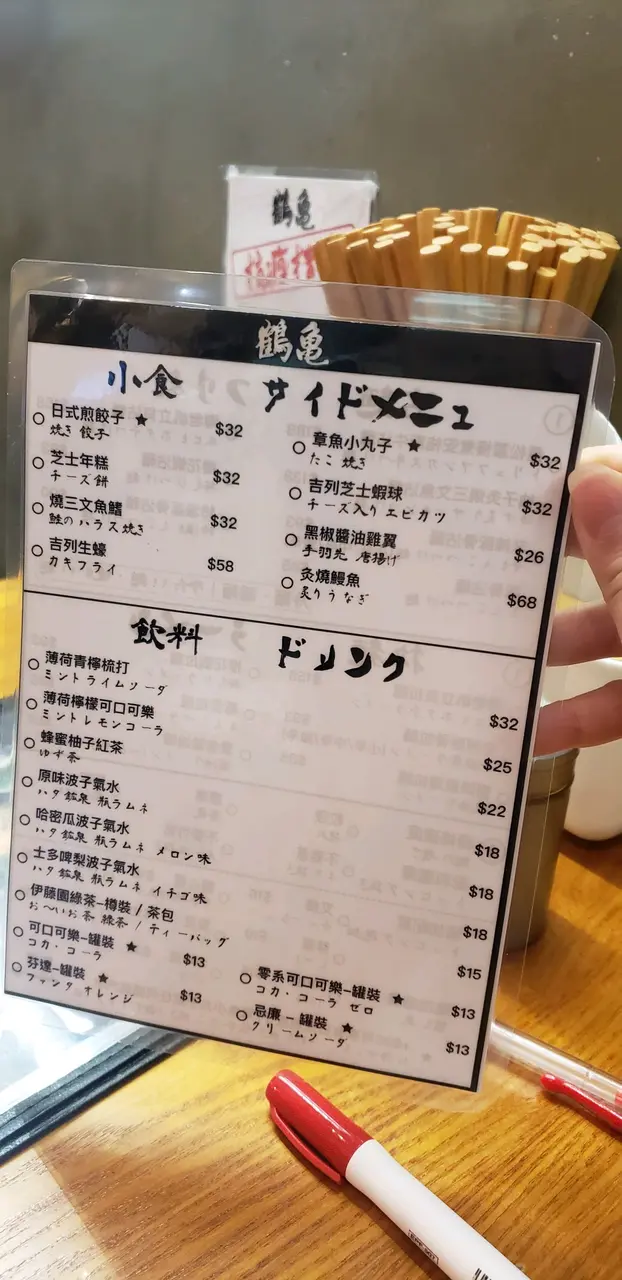 鶴亀
鶴亀
小食 サイドメニュ
日式煎餃子 ★ $32
焼き 餃子
芝士年糕 $32
チーズ餅
燒三文魚鰭 $32
鮭のハラス焼き
吉列生蠔 $58
カキフライ
章魚小丸子 ★ $32
たこ 焼き
吉列芝士蝦球 $32
チーズ入り エビカツ
黑椒醬油雞翼 $26
手羽先 唐揚げ
炙燒鰻魚 $68
炙りうなぎ
飲料 ドリンク
薄荷青檸梳打 $32
ミントライムソーダ
薄荷檸檬可口可樂 $25
ミントレモンコーラ
蜂蜜柚子紅茶 $22
ゆず茶
原味波子氣水 $18
ハタ鉱泉 瓶ラムネ
哈密瓜波子氣水 $18
ハタ鉱泉 瓶ラムネ メロン味
士多啤梨波子氣水 $18
ハタ鉱泉 瓶ラムネ イチゴ味
伊藤園綠茶–樽裝 / 茶包 $15
お〜いお茶 緑茶 / ティーバッグ
可口可樂–罐裝 ★ $13
コカ・コーラ
零系可口可樂–罐裝 ★ $13
コカ・コーラ ゼロ
芬達–罐裝 ★ $13
ファンタ オレンジ
忌廉 – 罐裝 ★ $13
クリームソーダ